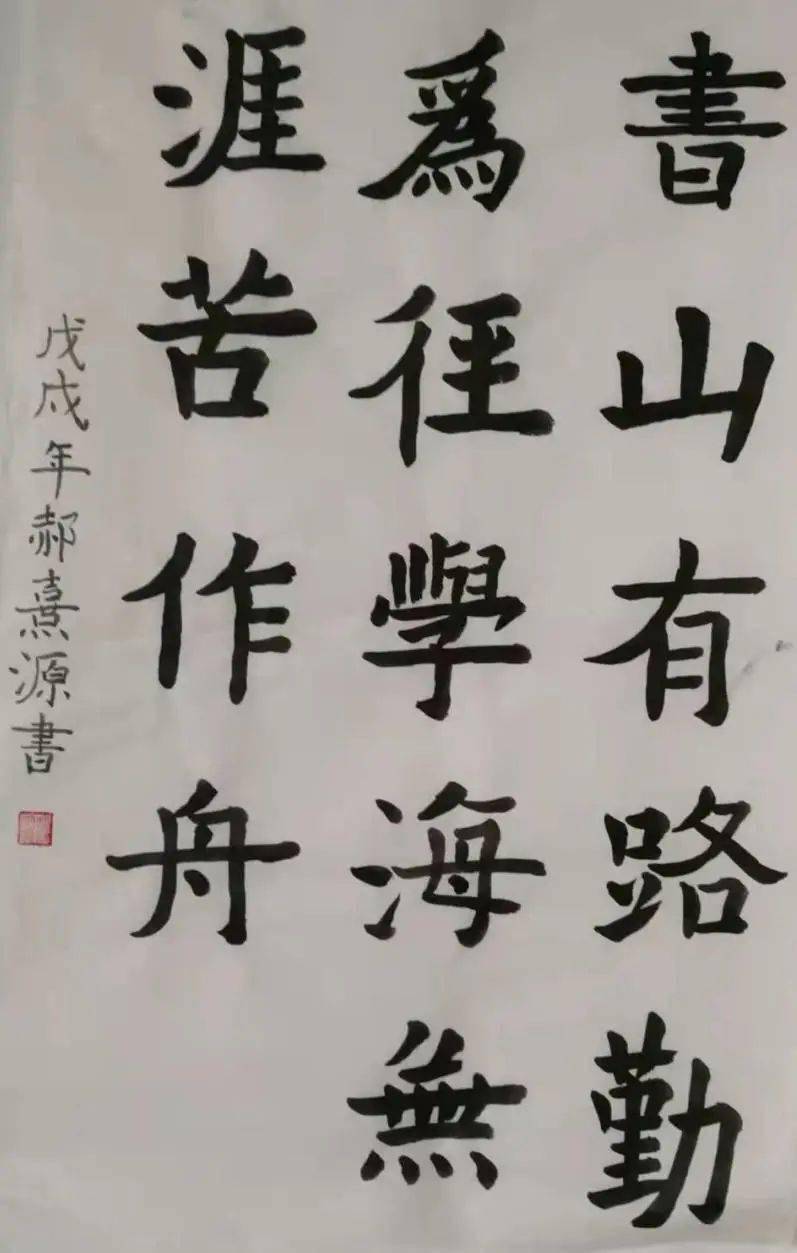 書山有路勤
爲徑學海無
涯苦作舟
戊戌年郝熹源書